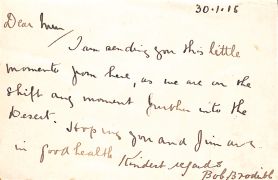 30.1.16
Dear Mum/
I am sending you this little
momento from here, as we are on the
shift any moment further into the
Desert. Hoping you and Jim are
in good health
Kindest regards
Bob